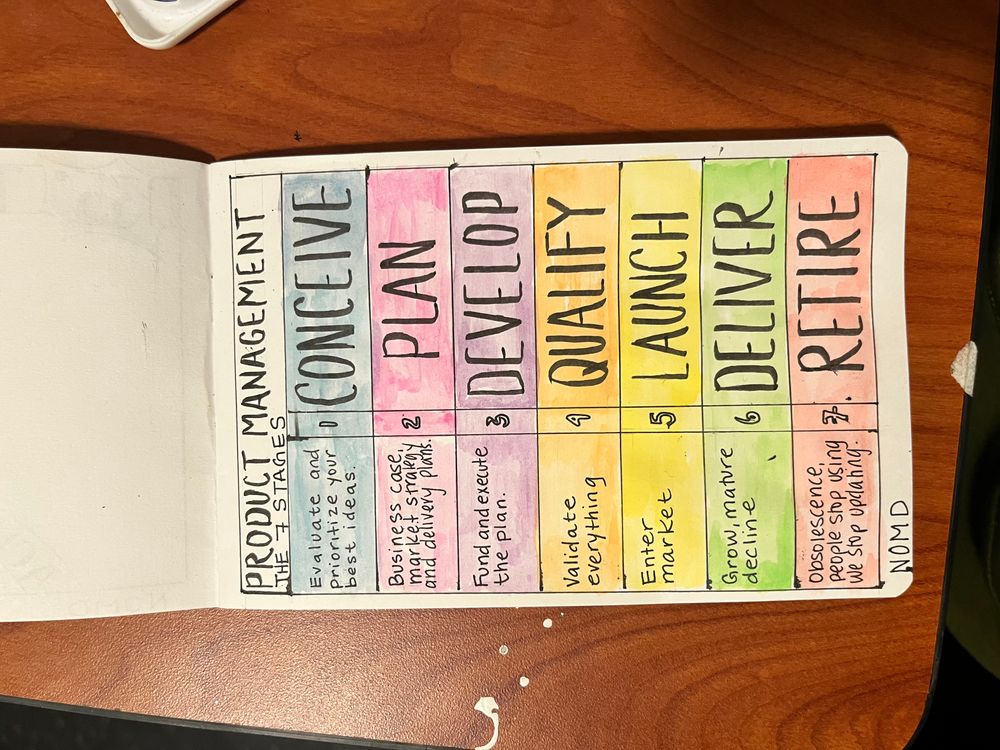 PRODUCT MANAGEMENT
THE 7 STAGES
Evaluate and
prioritize your
best ideas.
1
CONCEIVE
Business case,
market strategy,
and delivery plans.
2
PLAN
Fund and execute
the plan.
3
DEVELOP
Validate
everything
4
QUALIFY
Enter
market
5
LAUNCH
Grow, mature
decline
6
DELIVER
Obsolescence,
people stop using
we stop updating.
7.
RETIRE
NOMD